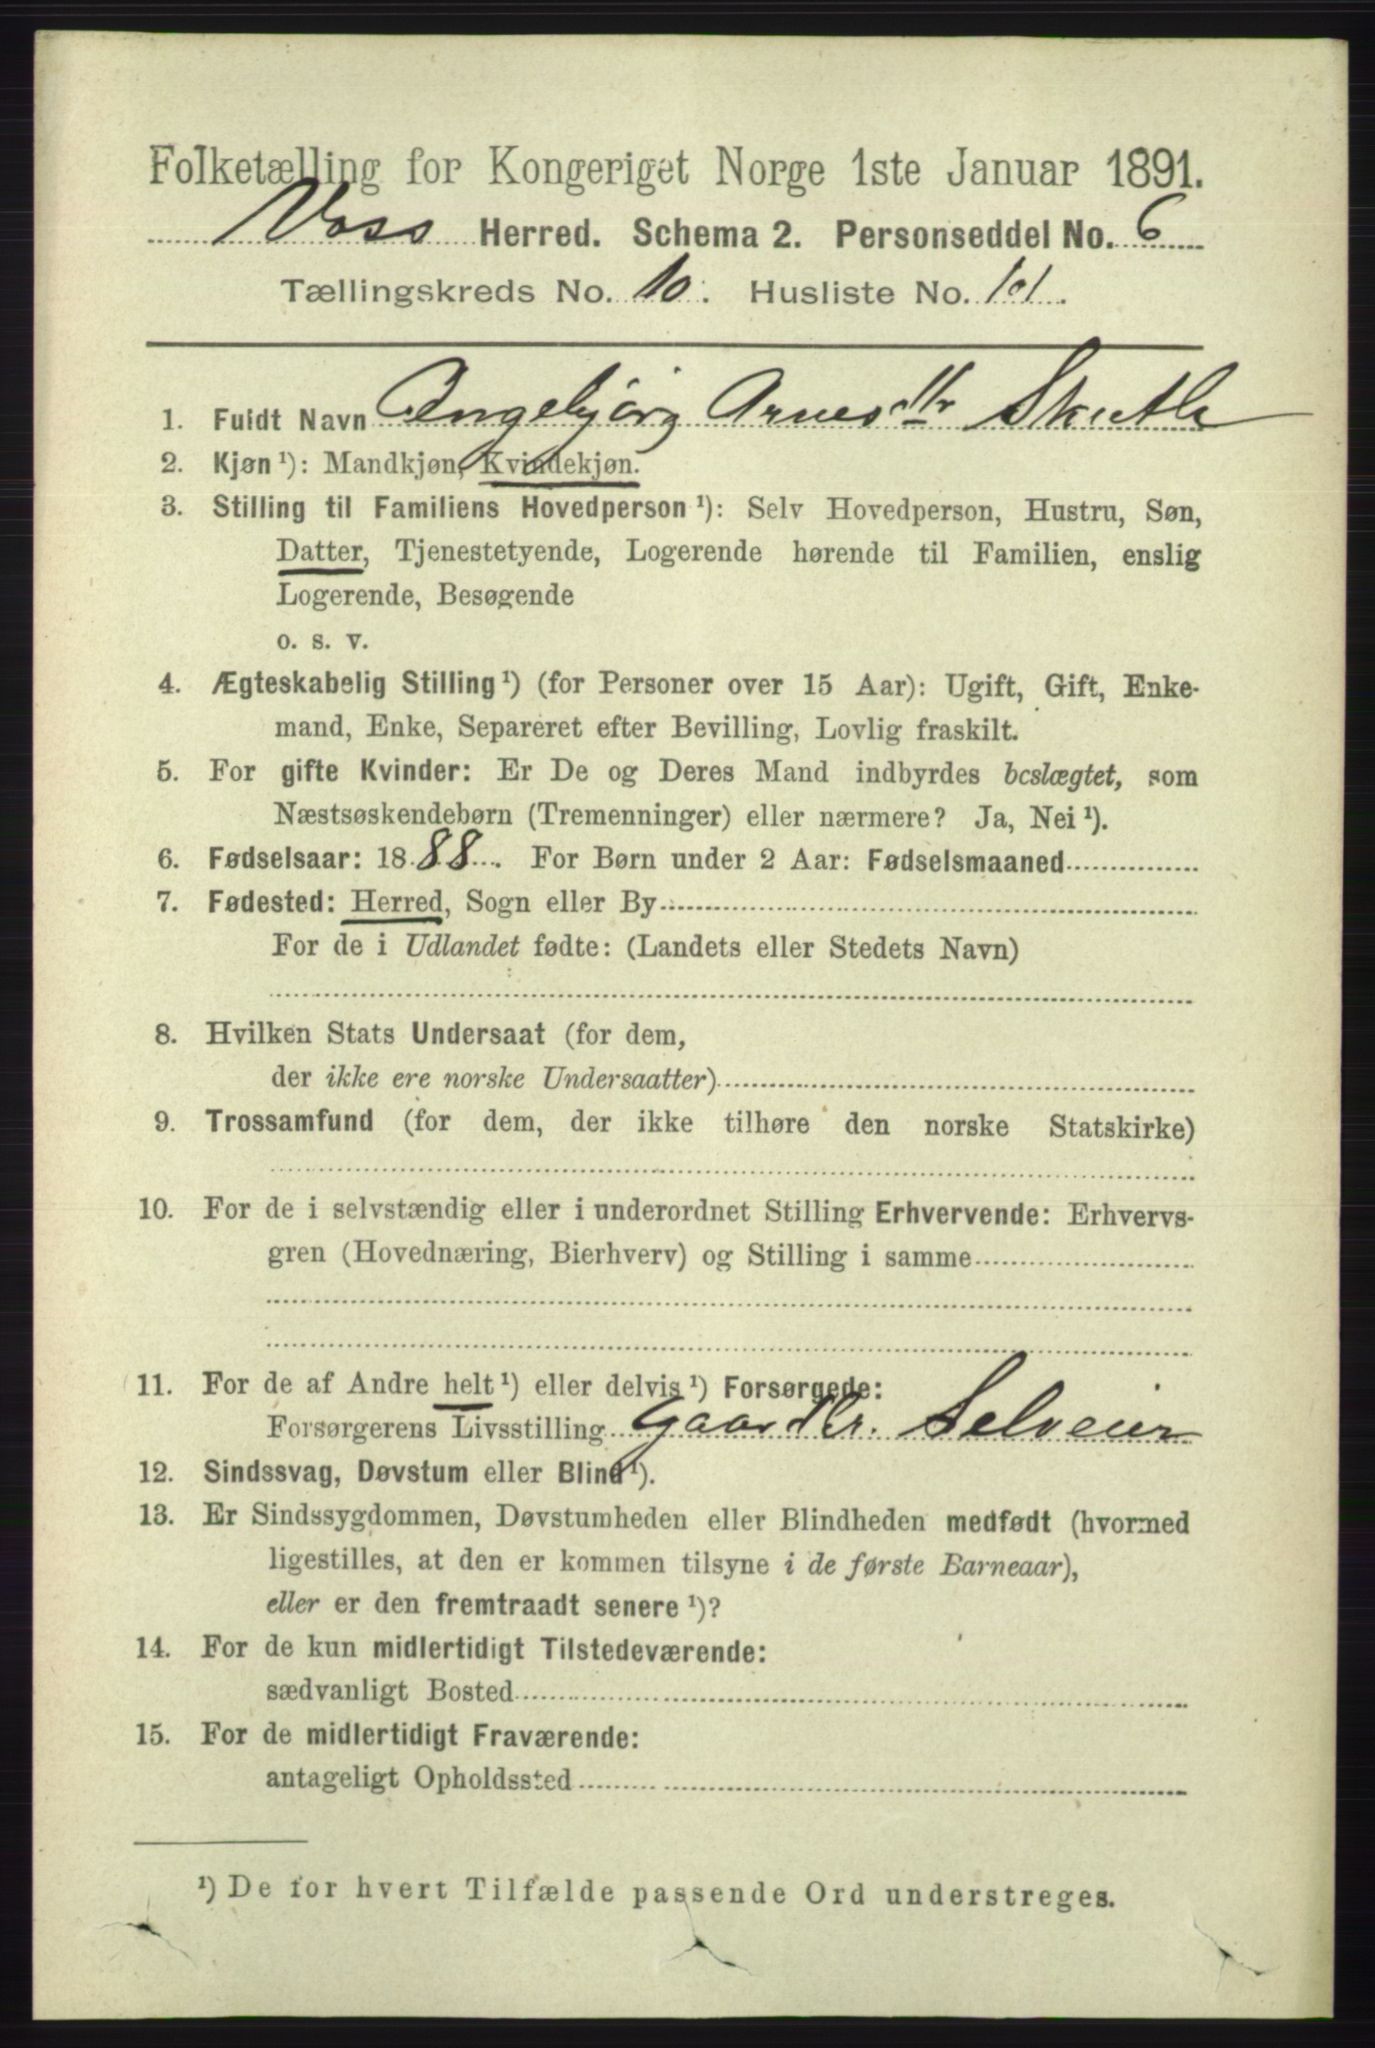 Folketælling for Kongeriget Norge 1ste Januar 1891.
Voss Herred. Schema 2. Personseddel No. 6
Tællingskreds No. 10. Husliste No. 101.
1. Fuldt Navn Ingebjørg Arnesdtr Skutle
2. Kjøn ¹): Mandkjøn, Kvindekjøn.
3. Stilling til Familiens Hovedperson ¹): Selv Hovedperson, Hustru, Søn,
Datter, Tjenestetyende, Logerende hørende til Familien, enslig
Logerende, Besøgende
o. s. v.
4. Ægteskabelig Stilling ¹) (for Personer over 15 Aar): Ugift, Gift, Enke-
mand, Enke, Separeret efter Bevilling, Lovlig fraskilt.
5. For gifte Kvinder: Er De og Deres Mand indbyrdes beslægtet, som
Næstsøskendebørn (Tremenninger) eller nærmere? Ja, Nei ¹).
6. Fødselsaar: 1888. For Børn under 2 Aar: Fødselsmaaned
7. Fødested: Herred, Sogn eller By
For de i Udlandet fødte: (Landets eller Stedets Navn)
8. Hvilken Stats Undersaat (for dem,
der ikke ere norske Undersaatter)
9. Trossamfund (for dem, der ikke tilhøre den norske Statskirke)
10. For de i selvstændig eller i underordnet Stilling Erhvervende: Erhvervs-
gren (Hovednæring, Bierhverv) og Stilling i samme
11. For de af Andre helt ¹) eller delvis ¹) Forsørgede:
Forsørgerens Livsstilling Gaardbr. Selveier
12. Sindssvag, Døvstum eller Blind ¹).
13. Er Sindssygdommen, Døvstumheden eller Blindheden medfødt (hvormed
ligestilles, at den er kommen tilsyne i de første Barneaar),
eller er den fremtraadt senere ¹)?
14. For de kun midlertidigt Tilstedeværende:
sædvanligt Bosted
15. For de midlertidigt Fraværende:
antageligt Opholdssted
¹) De for hvert Tilfælde passende Ord understreges.